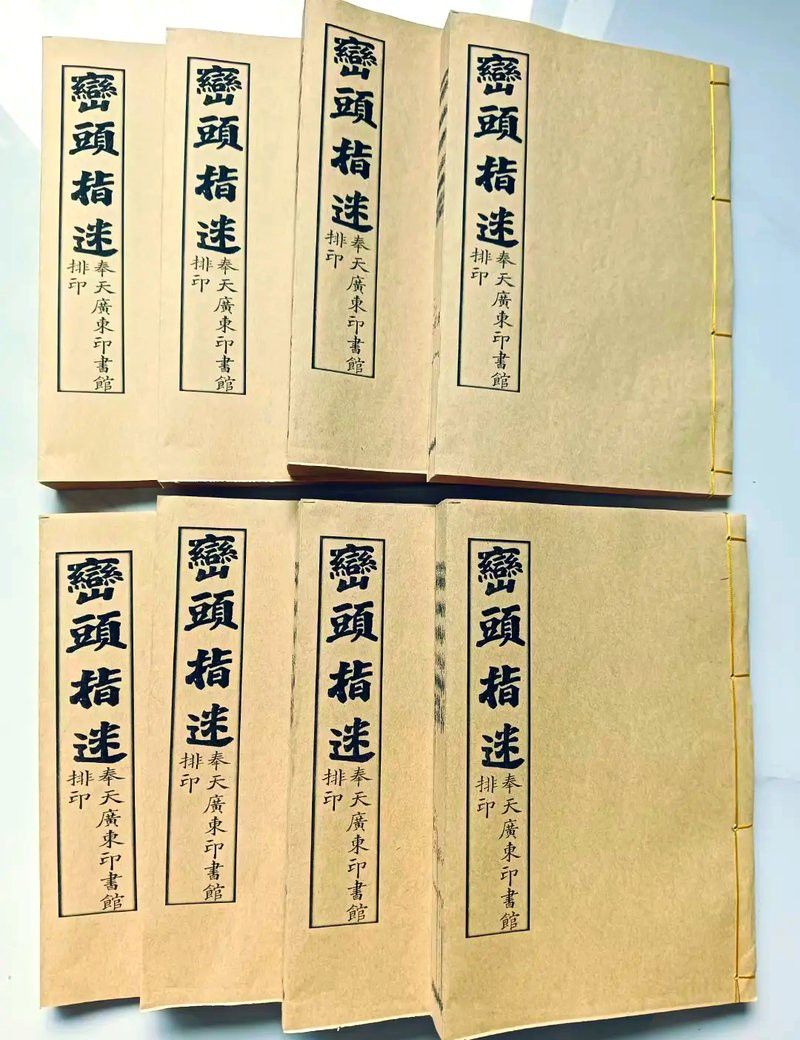 巒頭指迷
奉天廣東印書館
排印
巒頭指迷
奉天廣東印書館
排印
巒頭指迷
奉天廣東印書館
排印
巒頭指迷
奉天廣東印書館
排印
巒頭指迷
奉天廣東印書館
排印
巒頭指迷
奉天廣東印書館
排印
巒頭指迷
奉天廣東印書館
排印
巒頭指迷
奉天廣東印書館
排印